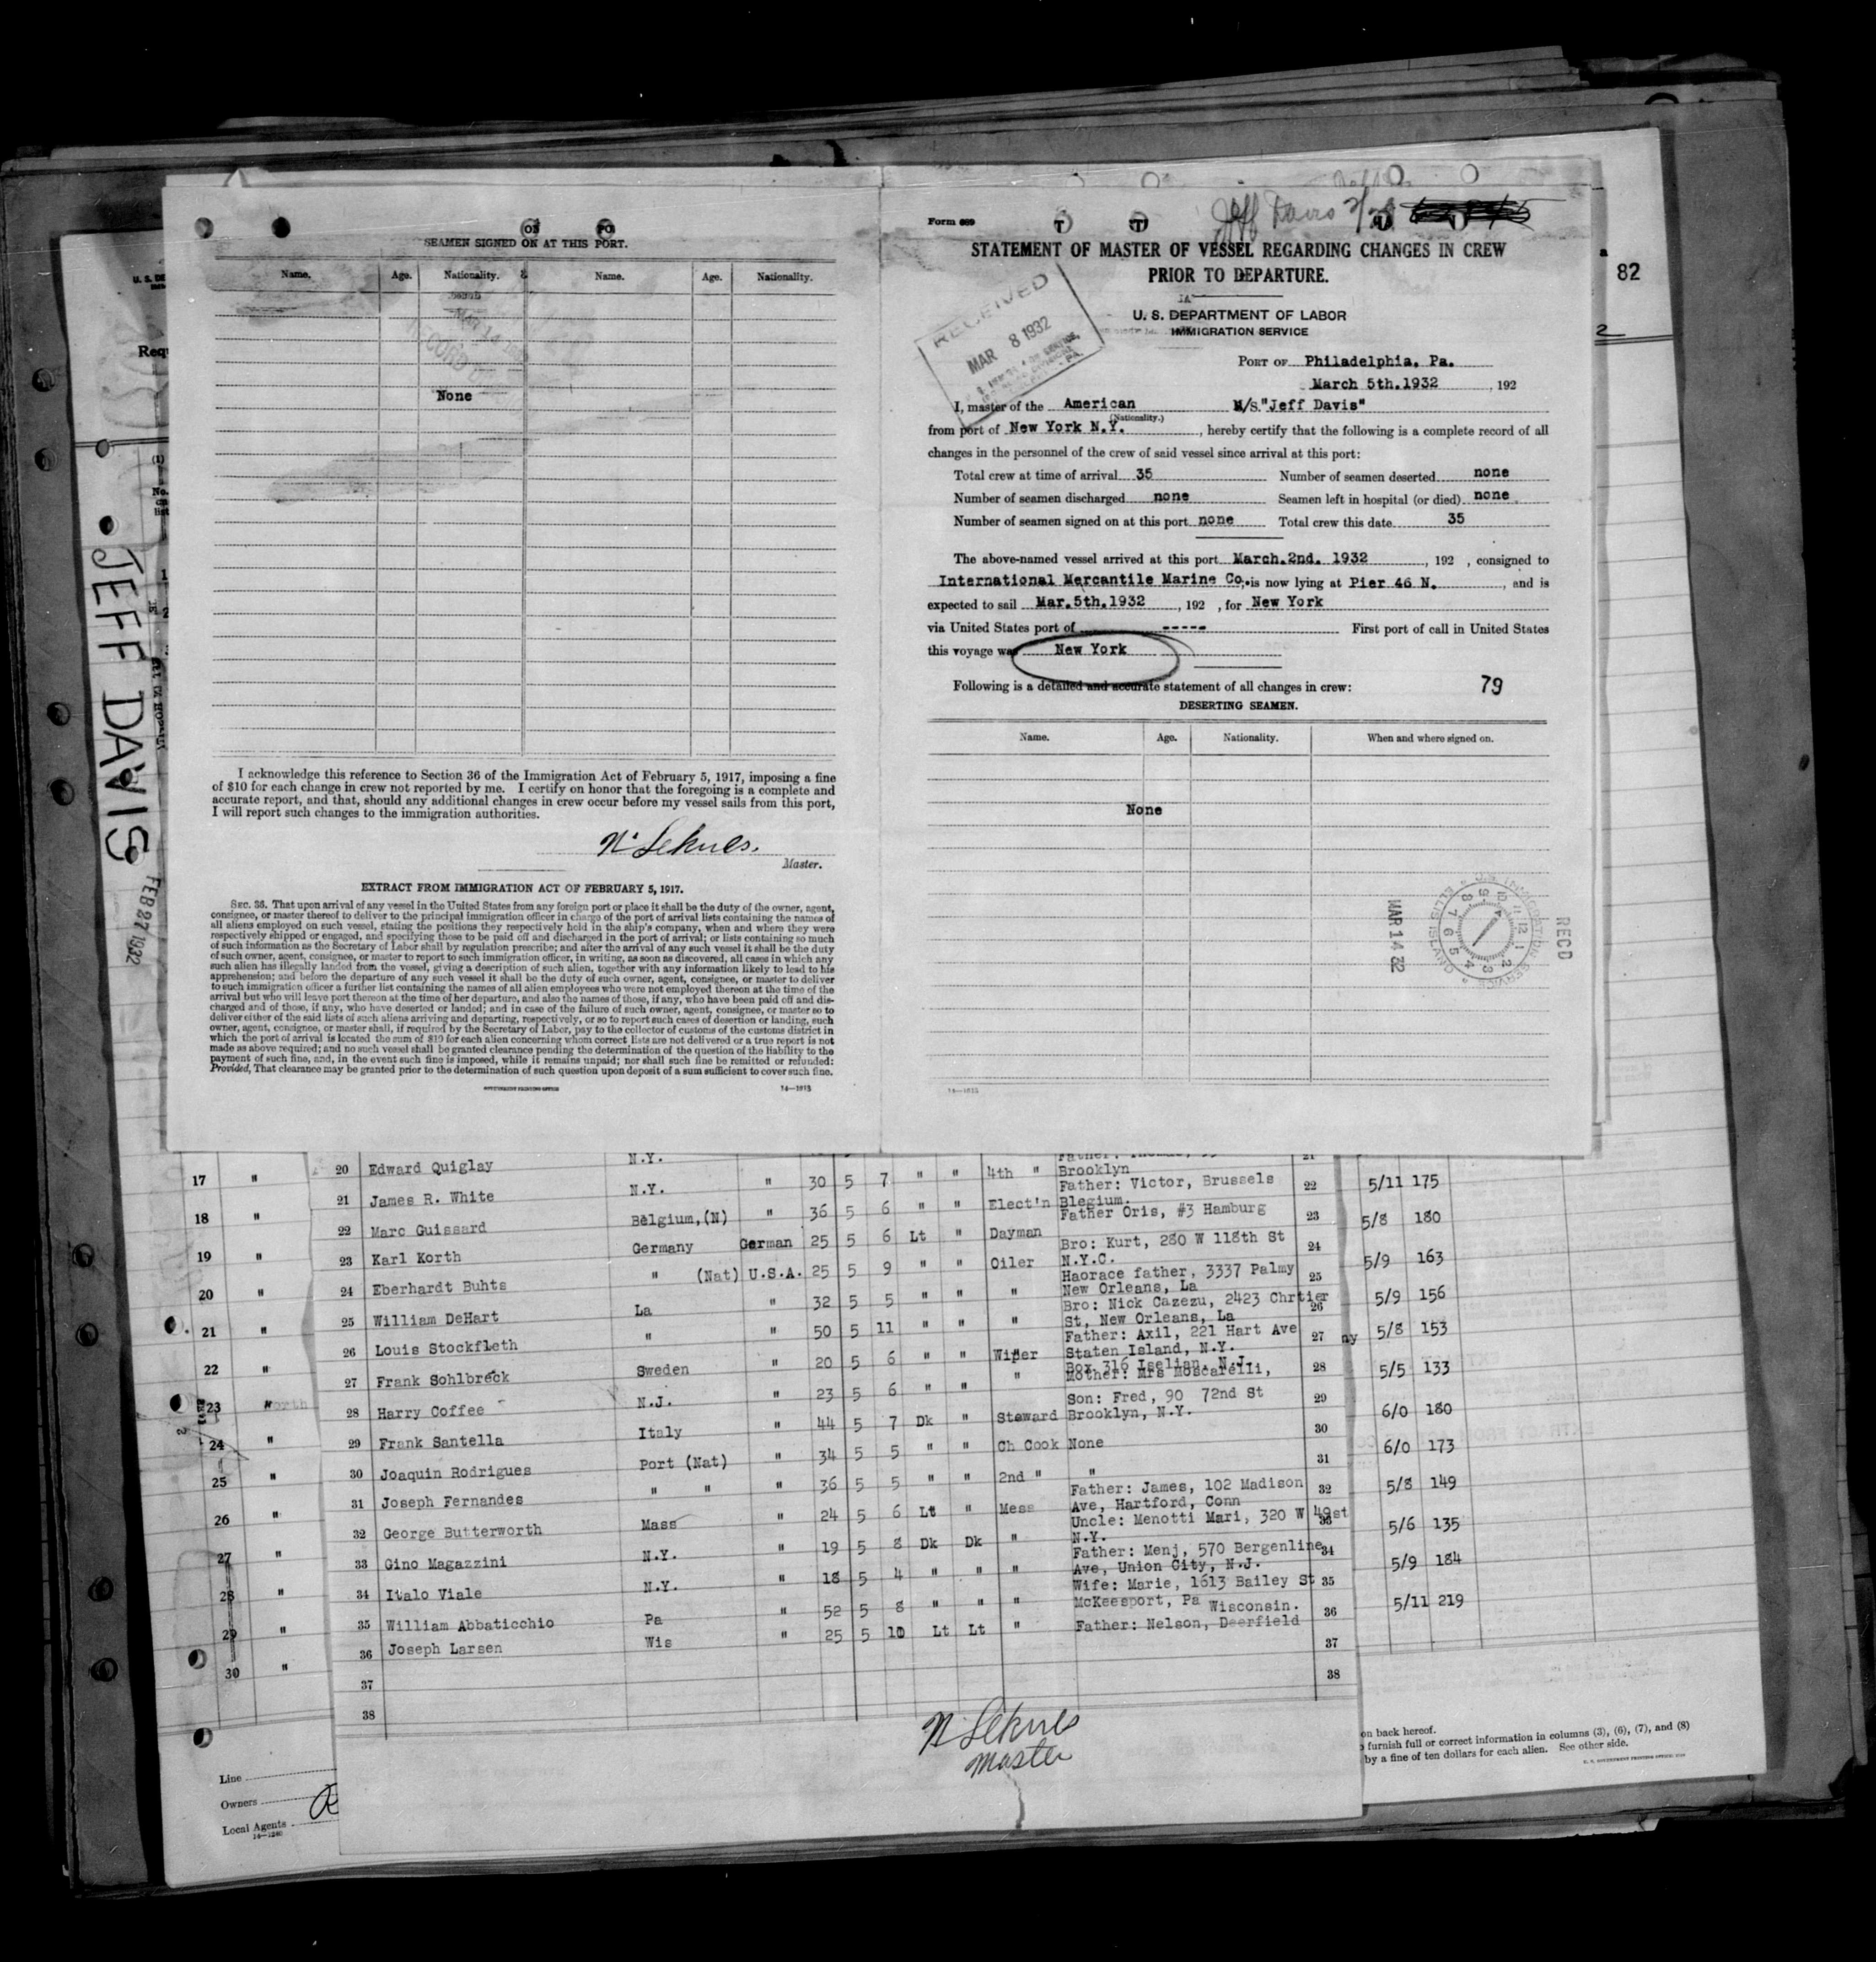 SEAMEN SIGNED ON AT THIS PORT.
Name. Age. Nationality. Name. Age. Nationality.
None
I acknowledge this reference to Section 36 of the Immigration Act of February 5, 1917, imposing a fine
of $10 for each change in crew not reported by me. I certify on honor that the foregoing is a complete and
accurate report, and that, should any additional changes in crew occur before my vessel sails from this port,
I will report such changes to the immigration authorities.
Master.
EXTRACT FROM IMMIGRATION ACT OF FEBRUARY 5, 1917.
SEC. 36. That upon arrival of any vessel in the United States from any foreign port or place it shall be the duty of the owner, agent,
consignee, or master thereof to deliver to the principal immigration officer in charge of the port of arrival lists containing the names of
all aliens employed on such vessel, stating the positions they respectively hold in the ship's company, when and where they were
respectively shipped or engaged, and specifying those to be paid off and discharged in the port of arrival; or lists containing so much
of such information as the Secretary of Labor shall by regulation prescribe; and after the arrival of any such vessel it shall be the duty
of such owner, agent, consignee, or master to report to such immigration officer, in writing, as soon as discovered, all cases in which any
such alien has illegally landed from the vessel, giving a description of such alien, together with any information likely to lead to his
apprehension; and before the departure of any such vessel it shall be the duty of such owner, agent, consignee, or master to deliver
to such immigration officer a further list containing the names of all alien employees who were not employed thereon at the time of the
arrival but who will leave port thereon at the time of her departure, and also the names of those, if any, who have been paid off and dis-
charged and of those, if any, who have deserted or landed; and in case of the failure of such owner, agent, consignee, or master so to
deliver either of the said lists of such aliens arriving and departing, respectively, or so to report such cases of desertion or landing, such
owner, agent, consignee, or master shall, if required by the Secretary of Labor, pay to the collector of customs of the customs district in
which the port of arrival is located the sum of $10 for each alien concerning whom correct lists are not delivered or a true report is not
made as above required; and no such vessel shall be granted clearance pending the determination of the question of the liability to the
payment of such fine, and, in the event such fine is imposed, while it remains unpaid; nor shall such fine be remitted or refunded:
Provided, That clearance may be granted prior to the determination of such question upon deposit of a sum sufficient to cover such fine.
GOVERNMENT PRINTING OFFICE 14—1013
Form 689
Jeff Davis
STATEMENT OF MASTER OF VESSEL REGARDING CHANGES IN CREW
PRIOR TO DEPARTURE.
U. S. DEPARTMENT OF LABOR
IMMIGRATION SERVICE
RECEIVED
MAR 8 1932
PORT OF Philadelphia, Pa.
March 5th.1932 , 192
I, master of the American M/S."Jeff Davis"
(Nationality.)
from port of New York N.Y. , hereby certify that the following is a complete record of all
changes in the personnel of the crew of said vessel since arrival at this port:
Total crew at time of arrival 35 Number of seamen deserted none
Number of seamen discharged none Seamen left in hospital (or died) none
Number of seamen signed on at this port none Total crew this date 35
The above-named vessel arrived at this port March.2nd. 1932 , 192 , consigned to
International Mercantile Marine Co. is now lying at Pier 46 N. , and is
expected to sail Mar.5th.1932 , 192 , for New York
via United States port of ----- First port of call in United States
this voyage was New York
Following is a detailed and accurate statement of all changes in crew: 79
DESERTING SEAMEN.
Name. Age. Nationality. When and where signed on.
None
REC'D
MAR 14 32
U.S. IMMIGRATION SERVICE
ELLIS ISLAND
82
JEFF DAVIS
FEB 27 1932
N.Y.
20 Edward Quiglay N.Y. " 30 5 7 " " 4th " Brooklyn
21 James R. White Father: Victor, Brussels 22
Belgium,(N) " 36 5 6 " " Elect'n Blegium.
22 Marc Guissard Father Oris, #3 Hamburg 23
Germany German 25 5 6 Lt " Dayman
23 Karl Korth Bro: Kurt, 280 W 118th St 24
" (Nat) U.S.A. 25 5 9 " " Oiler N.Y.C.
24 Eberhardt Buhts Haorace father, 3337 Palmy 25
La " 32 5 5 " " " New Orleans, La
25 William DeHart Bro: Nick Cazezu, 2423 Chrtier 26
" " 50 5 11 " " " St, New Orleans, La
26 Louis Stockfleth Father: Axil, 221 Hart Ave 27
Sweden " 20 5 6 " " Wiper Staten Island, N.Y.
27 Frank Sohlbreck Box 316 Iselian. N.J.
Mother: Mrs Moscarelli, 28
N.J. " 23 5 6 " " "
28 Harry Coffee Son: Fred, 90 72nd St 29
Italy " 44 5 7 Dk " Steward Brooklyn, N.Y.
29 Frank Santella 30
Port (Nat) " 34 5 5 " " Ch Cook None
30 Joaquin Rodrigues 31
" " " 36 5 5 " " 2nd " "
31 Joseph Fernandes Father: James, 102 Madison 32
Mass " 24 5 6 Lt " Mess Ave, Hartford, Conn
32 George Butterworth Uncle: Menotti Mari, 320 W 49st 33
N.Y. " 19 5 8 Dk Dk " N.Y.
33 Gino Magazzini Father: Menj, 570 Bergenline 34
N.Y. " 18 5 4 " " " Ave, Union City, N.J.
34 Italo Viale Wife: Marie, 1613 Bailey St 35
Pa " 52 5 8 " " " McKeesport, Pa
35 William Abbaticchio Wisconsin. 36
Wis " 25 5 10 Lt Lt " Father: Nelson, Deerfield
36 Joseph Larsen
37 37
38 38
Master
17 "
18 "
19 "
20 "
21 "
22 "
23
24 "
25 "
26 "
27 "
28 "
29 "
30 "
5/11 175
5/8 180
5/9 163
5/9 156
ny 5/8 153
5/5 133
6/0 180
6/0 173
5/8 149
5/6 135
5/9 184
5/11 219
Line
Owners
Local Agents
14—1240
on back hereof.
furnish full or correct information in columns (3), (6), (7), and (8)
by a fine of ten dollars for each alien. See other side.